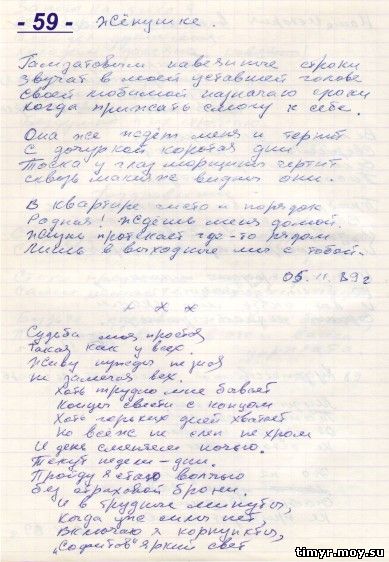 - 59 -
Жёнушке.
Гамзатовым навеянные строки
Звучат в моей уставшей голове
Своей любимой назначаю сроки
Когда прижать смогу к себе.
Она же ждёт меня и терпит
С дочуркой коротая дни
Тоска у глаз морщины чертит
Сквозь макияж видны они.
В квартире чисто и порядок
Родная! Ждёшь меня домой.
Жизнь протекает где-то рядом
Лишь в выходные мы с тобой.
05. 11. 89г
х х х
Судьба моя простая
Такая как у всех.
Живу нужды не зная
не замечая вех.
Хоть трудно мне бывает
Концы свести с концом
Хоть горьких дней хватает
Но всё ж не слеп не хром
И день сменяем ночью.
Текут недели - дни.
Пройду я стаю волчью
без страховой брони.
И в трудные минуты,
Когда уже силы нет,
Включаю я
"Софитов" яркий свет
timyr.moy.su